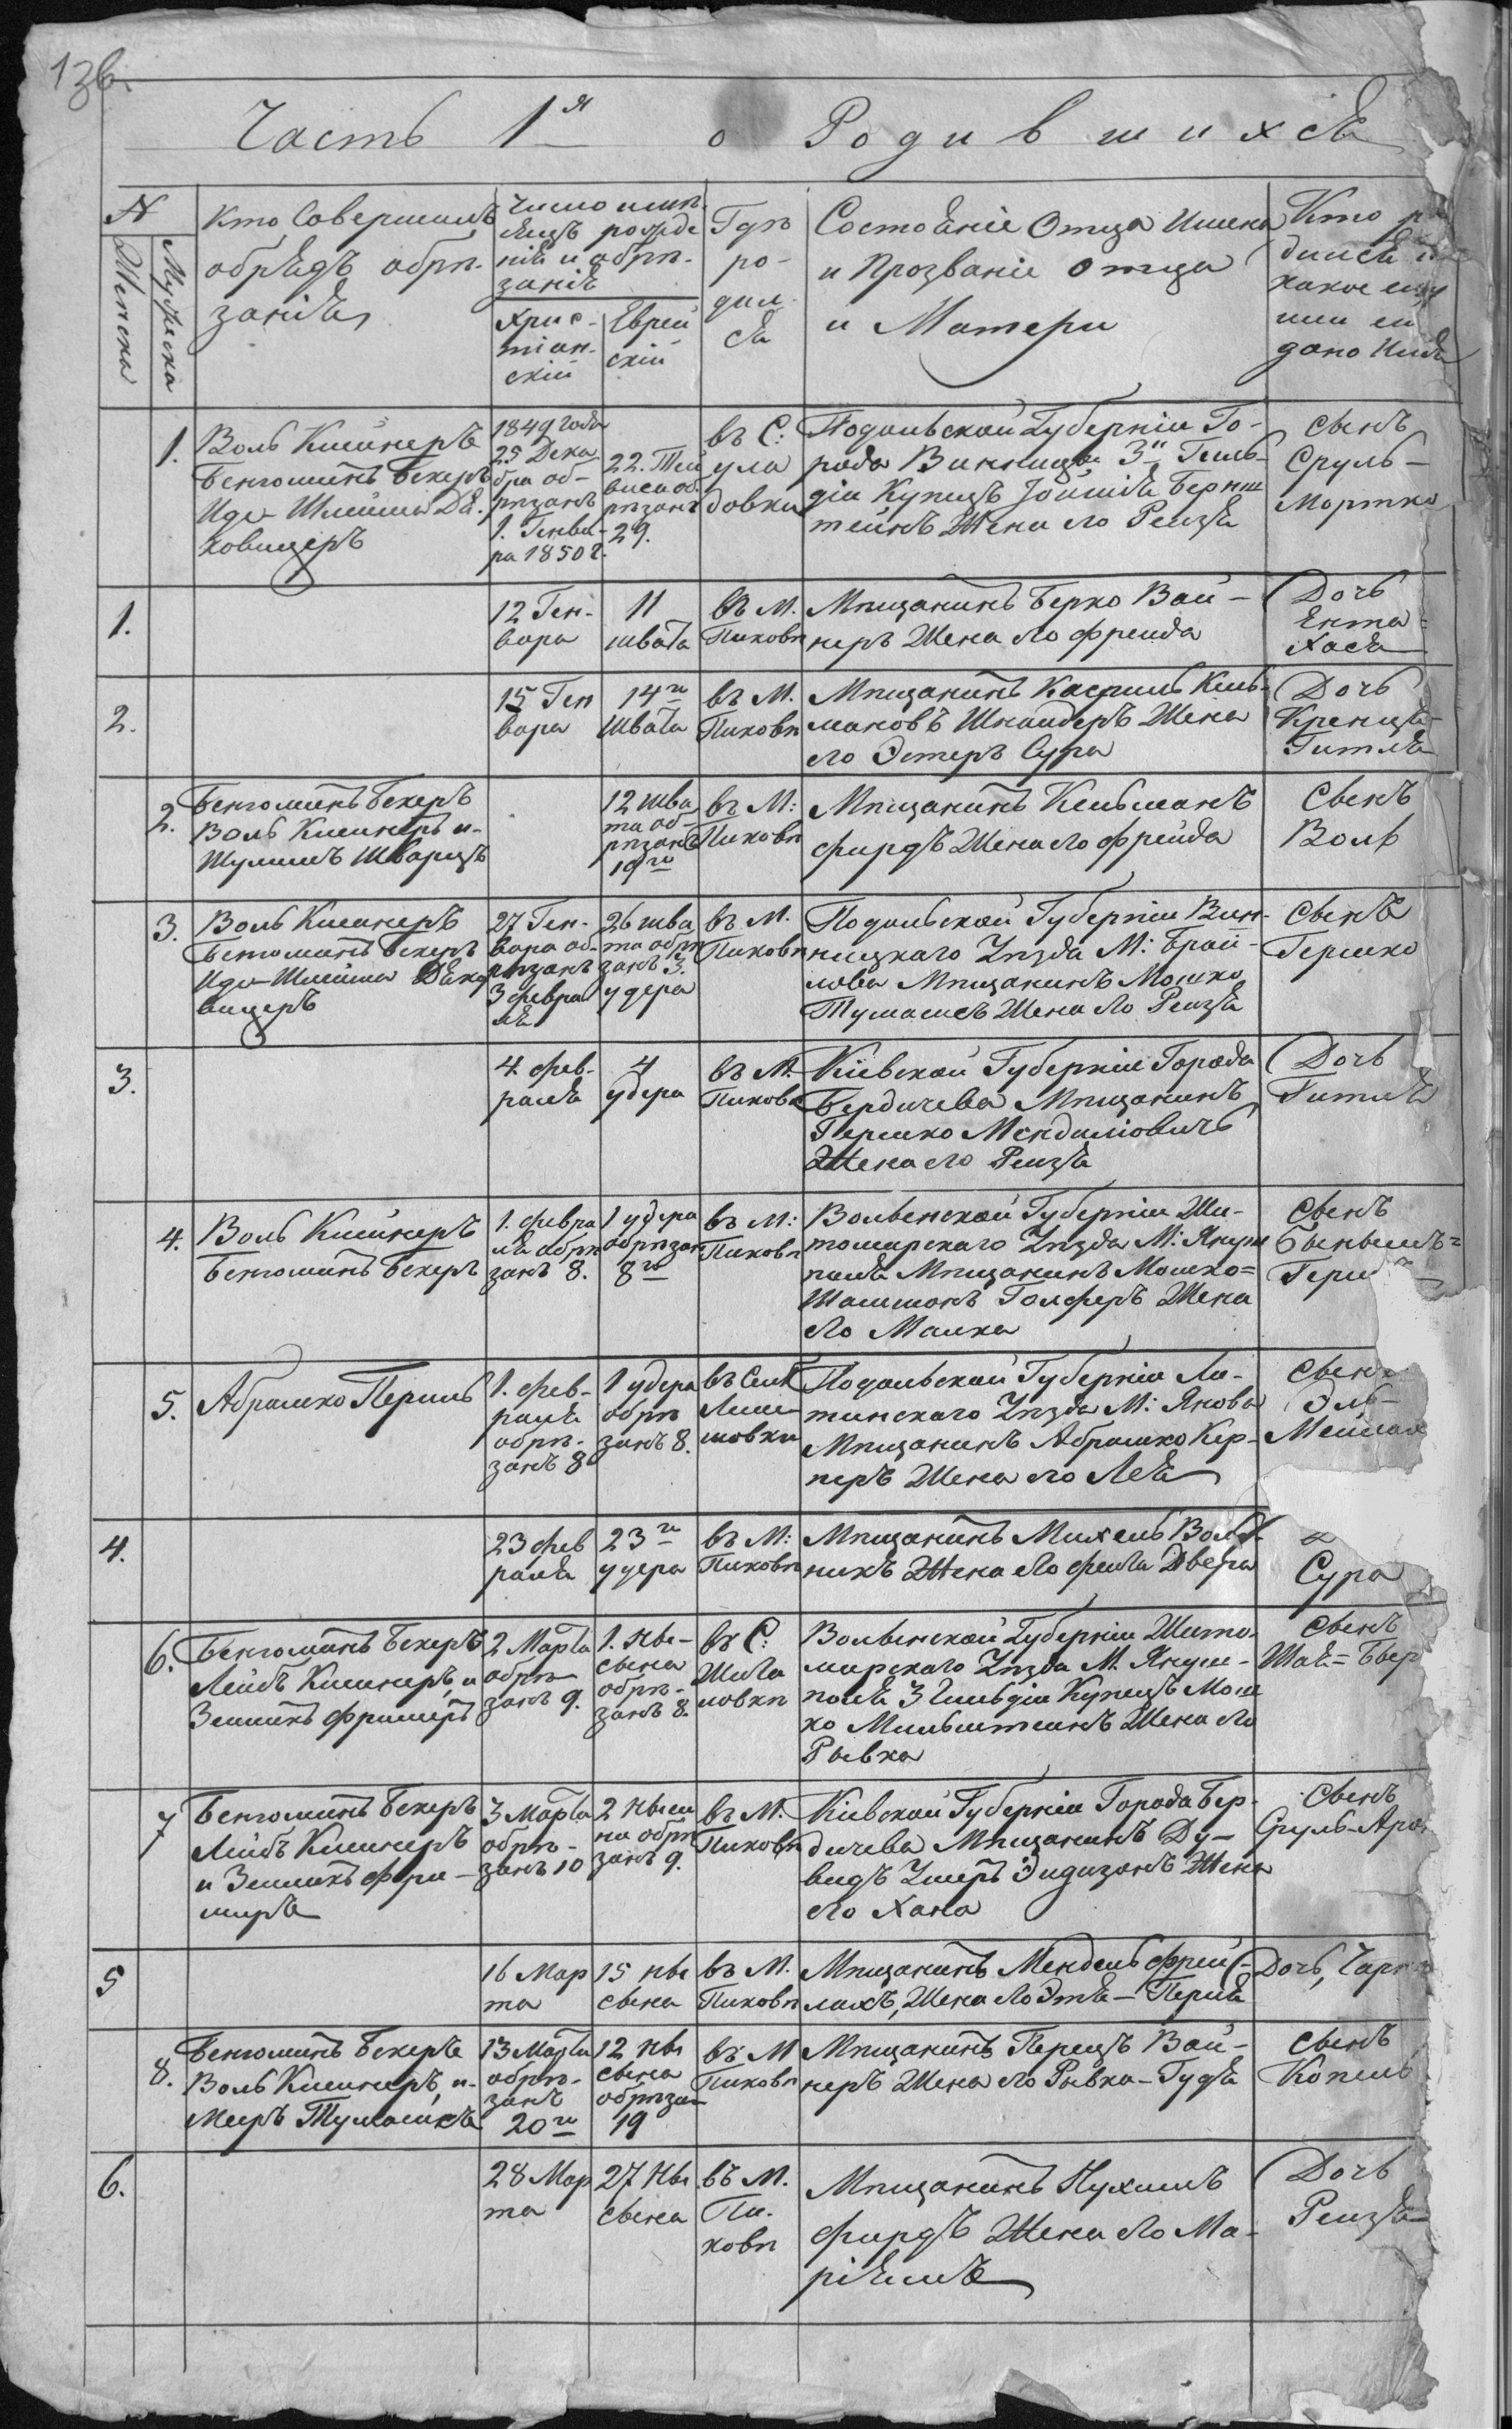 136.
Часть 1я о Родившихся
№
Женска
Мужеска
Кто Совершилъ
обрядъ обрѣ-
занія
Число и мѣ-
сяцъ рожде
нія и обрѣ-
занія
Хрис-
тіан-
скій
Еврей
скій
Гдѣ
ро-
дил-
ся
Состояніе Отца Имена
и Прозваніе отца
и Матери
Кто
дился
какое ему
или ей
дано Имя
1.
Воль Клейнеръ
Бенюминъ Бекеръ
Иде-Шлейма Дя-
ковицеръ
1849 года
25 Дека
бря об-
рѣзанъ
1. Генва-
ра 1850 г.
22. Тей
виса об-
рѣзанъ
29.
въ С:
ула
довки
Подольской Губерніи Го-
рода Винницы 3й Гиль-
діи Купецъ Бернш
тейнъ Жена его Рейзя
Сынъ
Сруль-
Мортко
1.
12 Ген-
вара
11
швата
въ М.
Пиковѣ
Мѣщанинъ Берко Вай-
неръ Жена его Фрейда
Дочь
Ента-
Хася
2.
15 Ген
вара
14го
швата
въ М.
Пиковѣ
Мѣщанинъ Касриль Кель-
мановъ Шнайдеръ Жена
его Эстеръ Сура
Дочь
Креиця-
Гитля
2.
Бенюминъ Бекеръ
Воль Клейнеръ и-
Шулимъ Шварцъ
12 шва
та об-
рѣзанъ
19го
въ М:
Пиковѣ
Мѣщанинъ Кельманъ
Фирдъ Жена его Фрейда
Сынъ
Воль
3.
Воль Клейнеръ
Бенюминъ Бекеръ
Иде-Шлейма Дяко
вицеръ
27 Ген-
вара об-
рѣзанъ
3 февра
ля
26 шва
та обрѣ
занъ 3.
удера
въ М.
Пиковѣ
Подольской Губерніи Вин-
ницкаго Уѣзда М: Браи-
лова Мѣщанинъ Мошко
Тумасисъ Жена его Рейзя
Сынъ
Гершко
3.
4. фев-
раля
4
удера
въ М.
Пиковѣ
Кіевской Губерніи Города
Бердичева Мѣщанинъ
Гершко Менделіовичъ
Жена его Рейзя
Дочь
Гитля
4.
Воль Клейнеръ
Бенюминъ Бекеръ
1. февра
ля обрѣ
занъ 8.
1 удера
обрѣзан
8го
въ М:
Пиковѣ
Волынской Губерніи Жи-
томирскаго Уѣзда М: Януш
поля Мѣщанинъ Мошко=
Шлиомонъ Гомферъ Жена
его Малка
Сынъ
Герш
5.
Абрамко Периль
1. фев-
раля
обрѣ-
занъ 8
1 удера
обрѣ
занъ 8.
въ Селѣ
Подольской Губерніи Ли-
тинскаго Уѣзда М: Янова
Мѣщанинъ Абрамко Кер-
неръ Жена его Лея
Сынъ
Эль-
4.
23 фев
раля
23го
удера
въ М:
Пиковѣ
Мѣщанинъ Михель
никъ Жена его Фейга Двейра
Сура
6.
Бенюминъ Бекеръ
Лейбъ Клейнеръ, и
Зелликъ Фримеръ
2 Марта
обрѣ-
занъ 9.
1. нве-
сына
обрѣ-
занъ 8.
въ С:
Волынской Губерніи Жито-
мирскаго Уѣзда М. Януш-
поля 3 Гильдіи Купецъ Мош
ко Мильштейнъ Жена его
Рывка
Сынъ
Шая= Бер
7
Бенюминъ Бекеръ
Лейбъ Клейнеръ
и Зелликъ Фри-
меръ
3 Марта
обрѣ-
занъ 10
2 нвсы
на обрѣ
занъ 9.
въ М.
Пиковѣ
Кіевской Губерніи Города Бер-
дичева Мѣщанинъ Ду-
видъ Умеръ Зидизонъ Жена
его Хана
Сынъ
Сруль-Арон
5
16 Мар
та
15 нве
сына
въ М.
Пиковѣ
Мѣщанинъ Мендель Фрей-
лахъ, Жена его Этя- Перля
Дочь, Чарн
8.
Бенюминъ Бекеръ
Воль Клейнеръ, и-
Меиръ Тумасисъ
13 Марта
обрѣ-
занъ
20го
12 нве
сына
обрѣзан
19
въ М
Пиковѣ
Мѣщанинъ Перецъ Вай-
неръ Жена его Рывка-Гудя
Сынъ
Копель
6.
28 Мар
та
27 нве
сына
въ М.
Пи-
ковѣ
Мѣщанинъ Нухимъ
Фирдъ Жена его Ма-
ріямъ
Дочь
Рейзя